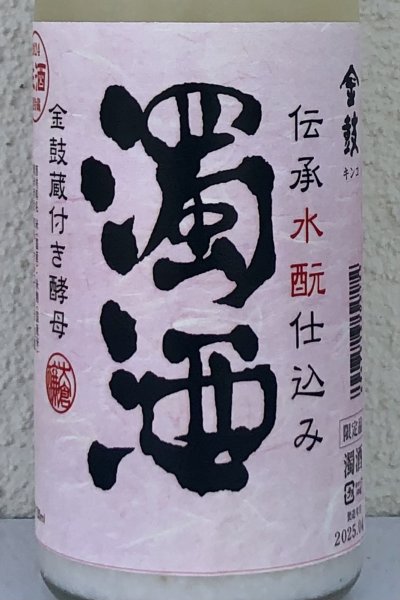 金鼓
キンコ
伝承水酛仕込み
濁酒
金鼓蔵付き酵母
大倉
限定品
濁酒
2025.04